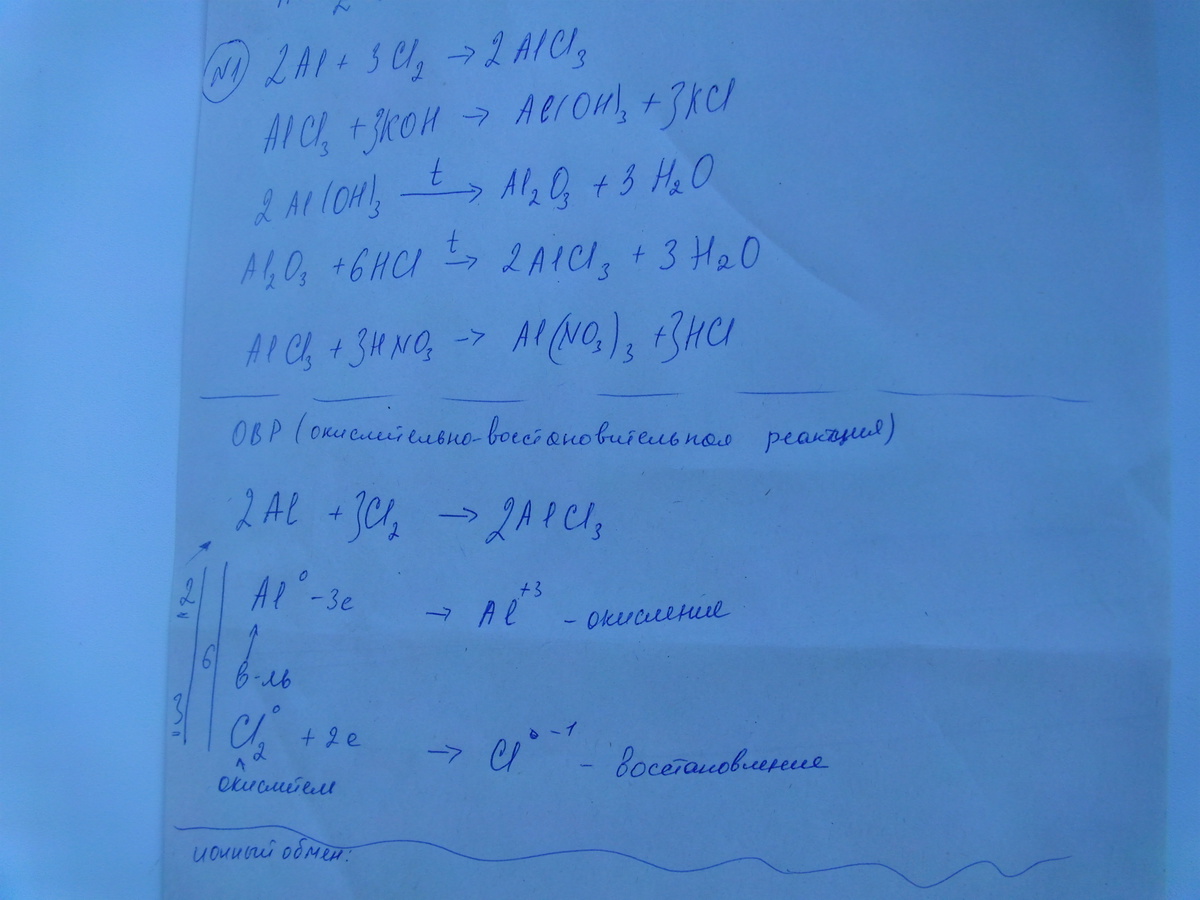 N1 2Al + 3Cl₂ → 2AlCl₃
AlCl₃ + 3KOH → Al(OH)₃ + 3KCl
2Al(OH)₃ t→ Al₂O₃ + 3H₂O
Al₂O₃ + 6HCl t→ 2AlCl₃ + 3H₂O
AlCl₃ + 3HNO₃ → Al(NO₃)₃ + 3HCl
ОВР (окислительно-восстановительная реакция)
2Al + 3Cl₂ → 2AlCl₃
2 Al⁰ - 3e → Al⁺³ - окисление
6
в-ль
3 Cl₂⁰ + 2e → Cl⁻¹ - восстановление
окислител
ионный обмен: